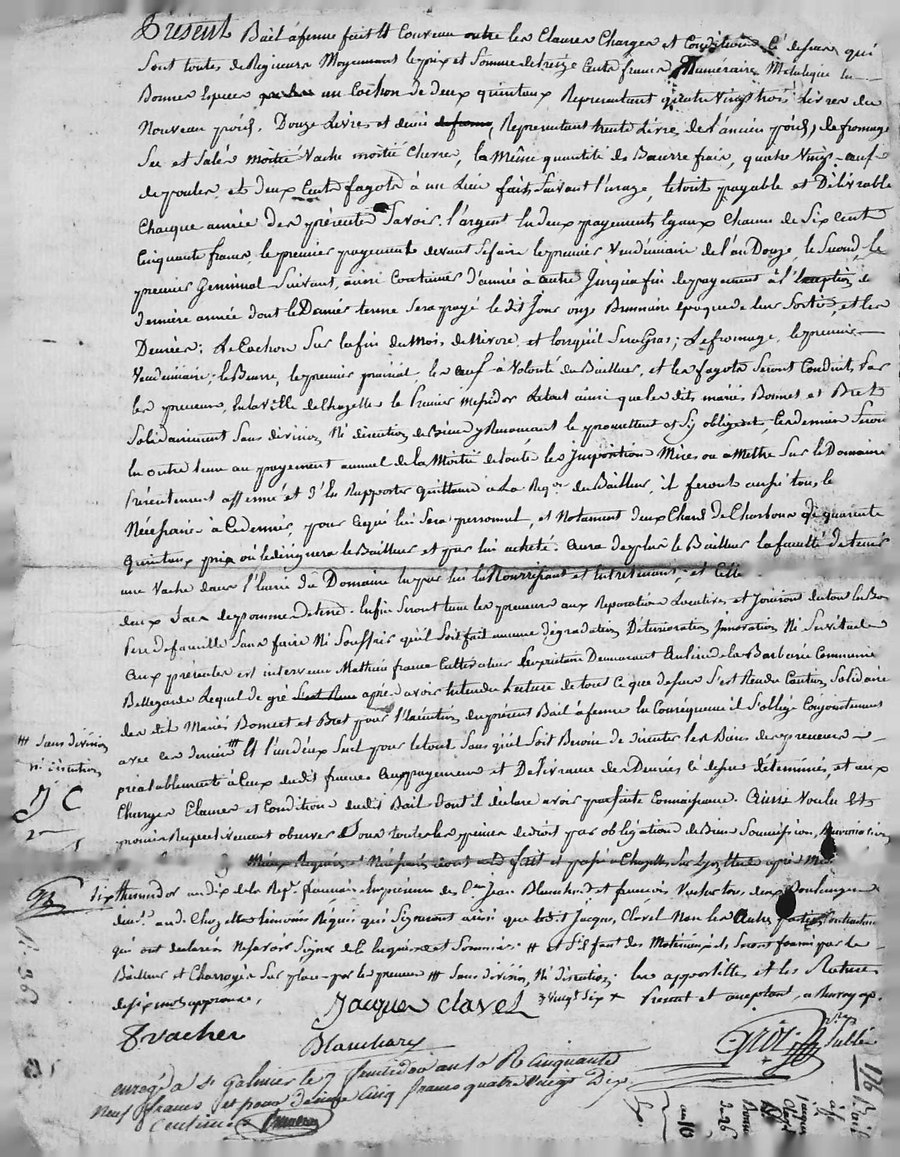 Présent Bail à ferme fait et Convenu outre les Clauses Charges et Conditions cy dessus qui
Sont toutes de Rigueur Moyennant le prix et Somme de treize Cents francs Numéraire Métalique en
Bonnes Especes un Cochon de deux quintaux Représentant quatre Vingt trois Livres du
Nouveau poids. Douze Livres et demi de fromage, Représentant trente Livres de l'ancien poids, de fromage
Sec et Salés moitié Vache moitié Chevre, la Même quantité de Beurre frais, quatre Vingt œufs
de poules, et deux Cents fagots à un Lien faits Suivant l'usage, le tout payable et Délivrable
Chacque année des présentes Savoir. l'argent En deux payements Egaux Chacun de Six Cent
Cinquante francs, le premier payement devant Se faire le premier Vendémiaire de l'an Douze, le Second, le
premier Germinal Suivant, ainsi Continuer d'année à autre Jusqu'à fin de payement à l'exception de
dernière année dont le Dernier terme Sera payé le dit Jour onze Brumaire Epoque de leur Sortie, et les
Denrées; Le Cochon Sur la fin du Mois de Nivose, et lorsqu'il Sera Gras; Le fromage, le premier
Vendémiaire; le Beurre, le premier prairial, les œufs à Volonté du Bailleur, et les fagots Seront Conduit, Par
les preneurs, En la Ville de Chazelle le Premier Messidor Le tout ainsi que les dits mariés Bonnet et Bret
Solidairement Sans division Ni discution de Biens y Renoncant le promettent et S'y obligent, Ces derniers Seront
En outre tenu au payement annuel de la Moitié de toute les Imposition Mises ou a Mettre Sur le Domaine
Présentement affermé et d'En Rapporter quittance à La Reqon du Bailleur, il feront aussi tous le
Nécéssaire à Ce dernier, pour ce qui lui Sera personnel, et Notament deux Chars de Charbons de quarante
quintaux pris ou le désignera le Bailleur et par lui acheté. aura de plus le Bailleur la faculté de tenir
une Vache dans l'Ecurie du Domaine En par lui la Nourrissant et Entretenant, et Celle
deux Sacs de pommes de terre. Enfin Seront tenu les preneurs aux Réparation Locatives et Jouiront du tout En Bon
Pere de famille Sans faire Ni Souffrir qu'il Soit fait aucune dégradation, Détérioration, Innovation Ni Servitude
Aux présentes est intervenu Mathieu france Cultivateur Propriétaire Demeurant au lieu de la Barbarie Commune
Bellegarde Lequel de gré après avoir Entendu Lecture de tout Ce que dessus S'est Rendu Caution, Solidaire
des dit Mariés Bonnet et Bret pour l'Exécution du présent Bail à ferme En Conséquence il S'oblige Conjointement
avec ces dernier ## Et l'un d'eux Seul pour le tout Sans qu'il Soit Besoin de discuter les Biens des preneurs
préalablement à Ceux du dit france au payement et Délivrance des Denrées cy dessus déterminés, et aux
Charges Clauses et Condition du dit Bail dont il déclare avoir parfaite Connaissance. Ainsi Voulu Et
promis Respectivement observer Sous toutes les peines de droit par obligation de Biens Soumission, Renonciation
fait et passé a Chazelle Sur Lyon Etude après Midi
## Sans division
ni discution
J C
Six thermidor an dix de la Repe francaise En présence des Cens Jean Blanchard et francois Vacher tous deux Boulangers
demts audt Chazelle témoins Réquis qui Signeront ainsi que ledit Jacques, Clavel Non les autres parties Contractantes
qui ont déclarés Ne Savoir Signer de Ce Enquises et Sommés. # et S'il faut des Matériaux ils Seront fournis par Le
Bailleur et Charroyés Sur place par les preneurs ## Sans division, Ni discution; les appostilles et les Ratures
de Six mots approuvés,
Jacques Clavel
fvacher
Blanchard
Grosj
enregé a St Galmier le 7 fructidor an 10 R Cinquante
Neuf francs et pour dixième Cinq francs quatre Vingt Dix
Centimes
an 10